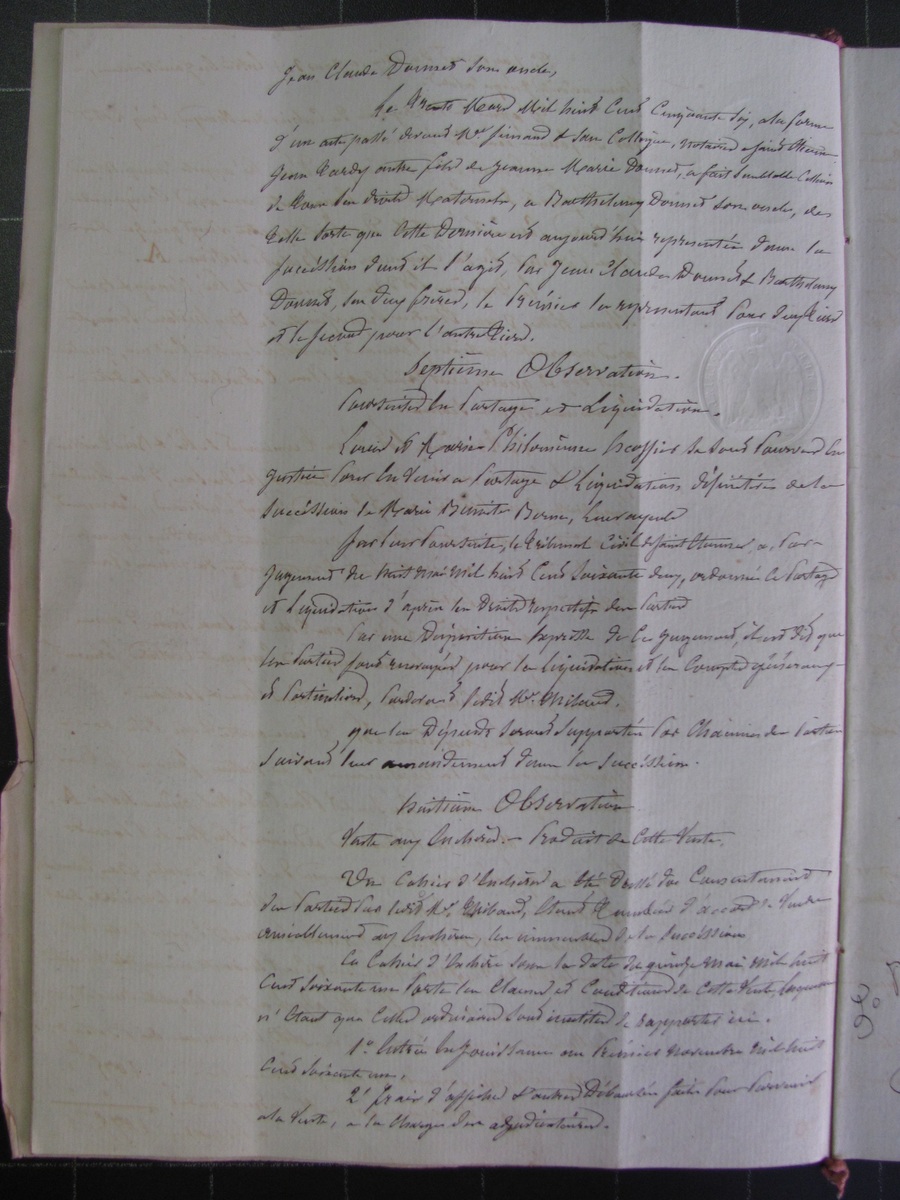 Jean Claude Donnet son oncle,
Le trente Mars Mil huit Cent Cinquante six, a la forme
d'un acte passé devant Me & son Collègue, notaires a Saint Etienne
Jean autre fils de Jeanne Marie Donnet, a fait semblable Cession
de tous les droits Maternels, a Barthelemy Donnet son oncle, de
telle sorte que Cette Dernière est aujourd'hui representée dans la
succéssion dont il s'agit, par Jean Claude Donnet & Barthelemy
Donnet, ses deux frères, le Premier la representant pour deux tiers
et le second pour l'autre tiers.
Septième Observation.
Poursuites en Partage et Liquidation.
Louis et Marie Philomène se sont Pourvus en
justice pour en venir a Partage & Liquidation définitives de la
succéssion de Marie Benoite leur ayeule
Sur leur Poursuite, le tribunal Civil de Saint Etienne, a, par
jugement du huit mai Mil huit Cent soixante deux, ordonné le Partage
et Liquidation d'après les Droits respectifs des Parties
Par une Disposition expresse de Ce jugement, il est dit que
les Parties sont renvoyées pour la Liquidation et les Comptes généraux
et Particuliers, pardevant ledit Me.
que les Dépens seront supportés par Chacune des Parties
suivant leur amendement dans la succéssion.
huitième Observation
Vente aux Enchères. – Produit de Cette Vente.
Un Cahier d'Enchères a été Dressé du Consentement
des Parties par ledit Me. étant d'accord de Vendre
amiablement aux Enchères, les immeubles de la succéssion
Ce Cahier d'Enchère sous la date du quinze mai mil huit
Cent soixante un Porte les Clauses et Conditions de Cette Vente, lesquelles
n'étant que Celles ordinaires sont inutiles de rapporter ici.
1o. Entrée en Jouissance au Premier novembre mil huit
Cent soixante un,
2o. frais d'affiche & autres Déboursés faits Pour Parvenir
a la Vente, a la Charge des adjudicataires.